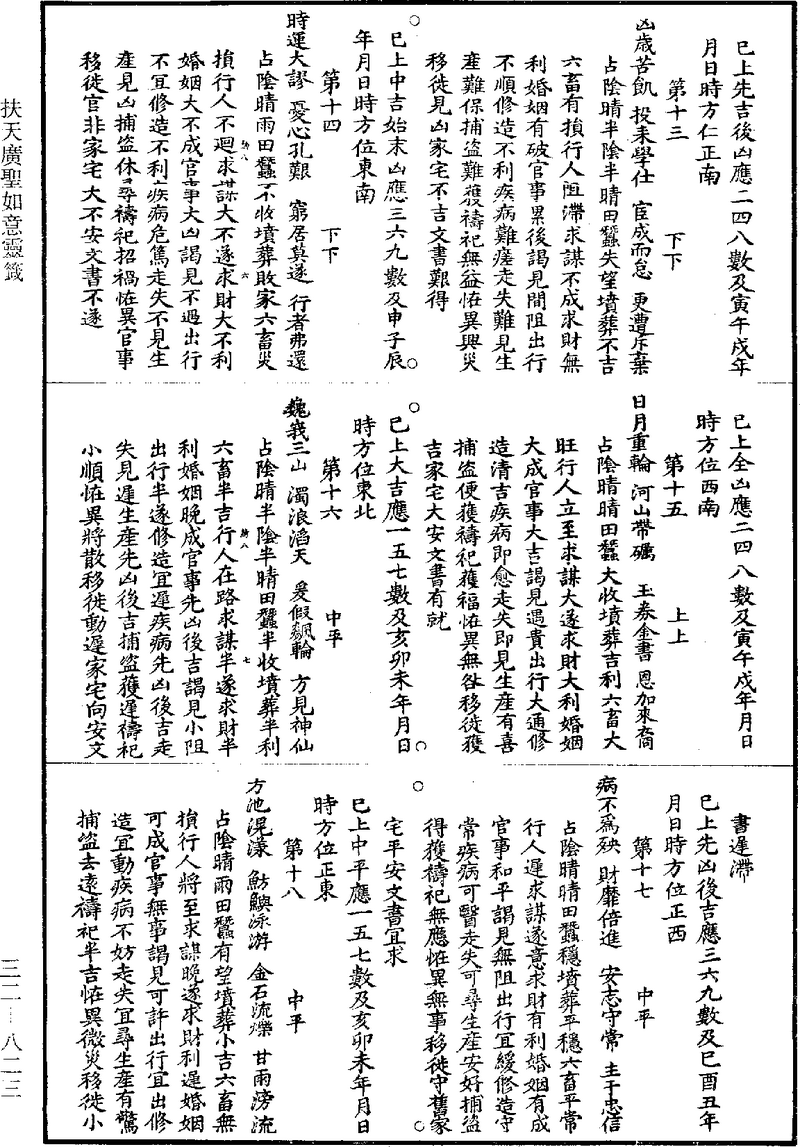 巳上先吉後凶應二四八數及寅午戌年
月日時方仁正南
第十三　下下
凶歲苦飢　投耒學仕　宦成而怠　更遭斥棄
占陰晴半陰半晴田蠶失望墳葬不吉
六畜有損行人阻滯求謀不成求財無
利婚姻有破官事累後謁見間阻出行
不順修造不利疾病難瘥走失難見生
產難保捕盜難獲禱祀無益恠異興災
移徙見凶家宅不吉文書艱得
巳上中吉始末凶應三六九數及申子辰
年月日時方位東南
第十四　下下
時運大謬　憂心孔艱　窮居莫遂　行者弗還
占陰晴雨田蠶不收墳葬敗家六畜災
損行人不迴求謀大不遂求財大不利
婚姻大不成官事大凶謁見不遇出行
不宜修造不利疾病危篤走失不見生
產見凶捕盜休尋禱祀招禍恠異官事
移徙官非家宅大不安文書不遂
巳上全凶應二四八數及寅午戌年月日
時方位西南
第十五　上上
日月重輪　河山帶礪　玉券金書　恩加來裔
占陰晴晴田蠶大收墳葬吉利六畜大
旺行人立至求謀大遂求財大利婚姻
大成官事大吉謁見遇貴出行大通修
造清吉疾病即愈走失即見生產有喜
捕盜便獲禱祀獲福恠異無咎移徙獲
吉家宅大安文書有就
巳上大吉應一五七數及亥卯未年月日
時方位東北
第十六　中平
巍峩三山　濁浪滔天　爰假飆輪　方見神仙
占陰晴半陰半晴田蠶半收墳葬半利
六畜半吉行人在路求謀半遂求財半
利婚姻晚成官事先凶後吉謁見小阻
出行半遂修造宜遲疾病先凶後吉走
失見遲生產先凶後吉捕盜獲遲禱祀
小順恠異將散移徙動遲家宅向安文
書遲滯
巳上先凶後吉應三六九數及巳酉丑年
月日時方位正西
第十七　中平
病不為殃　財靡倍進　安志守常　主于忠信
占陰晴晴田蠶穩墳葬平穩六畜平常
行人遲求謀遂意求財有利婚姻有成
官事和平謁見無阻出行宜緩修造守
常疾病可醫走失可尋生產安好捕盜
得獲禱祀無應恠異無事移徙守舊家
宅平安文書宜求
巳上中平應一五七數及亥卯未年月日
時方位正東
第十八　中平
方池滉漾　魴鱮泳游　金石流爍　甘雨滂流
占陰晴雨田蠶有望墳葬小吉六畜無
損行人將至求謀晚遂求財利遲婚姻
可成官事無事謁見可許出行宜出修
造宜動疾病不妨走失宜尋生產有驚
捕盜去遠禱祀半吉恠異微災移徙小
扶天廣聖如意靈籤
三二—八二三